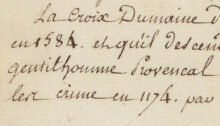 La Croix Dumaine d
en 1584. et qu'il descen
gentilhomme Provencal
en 1174. par